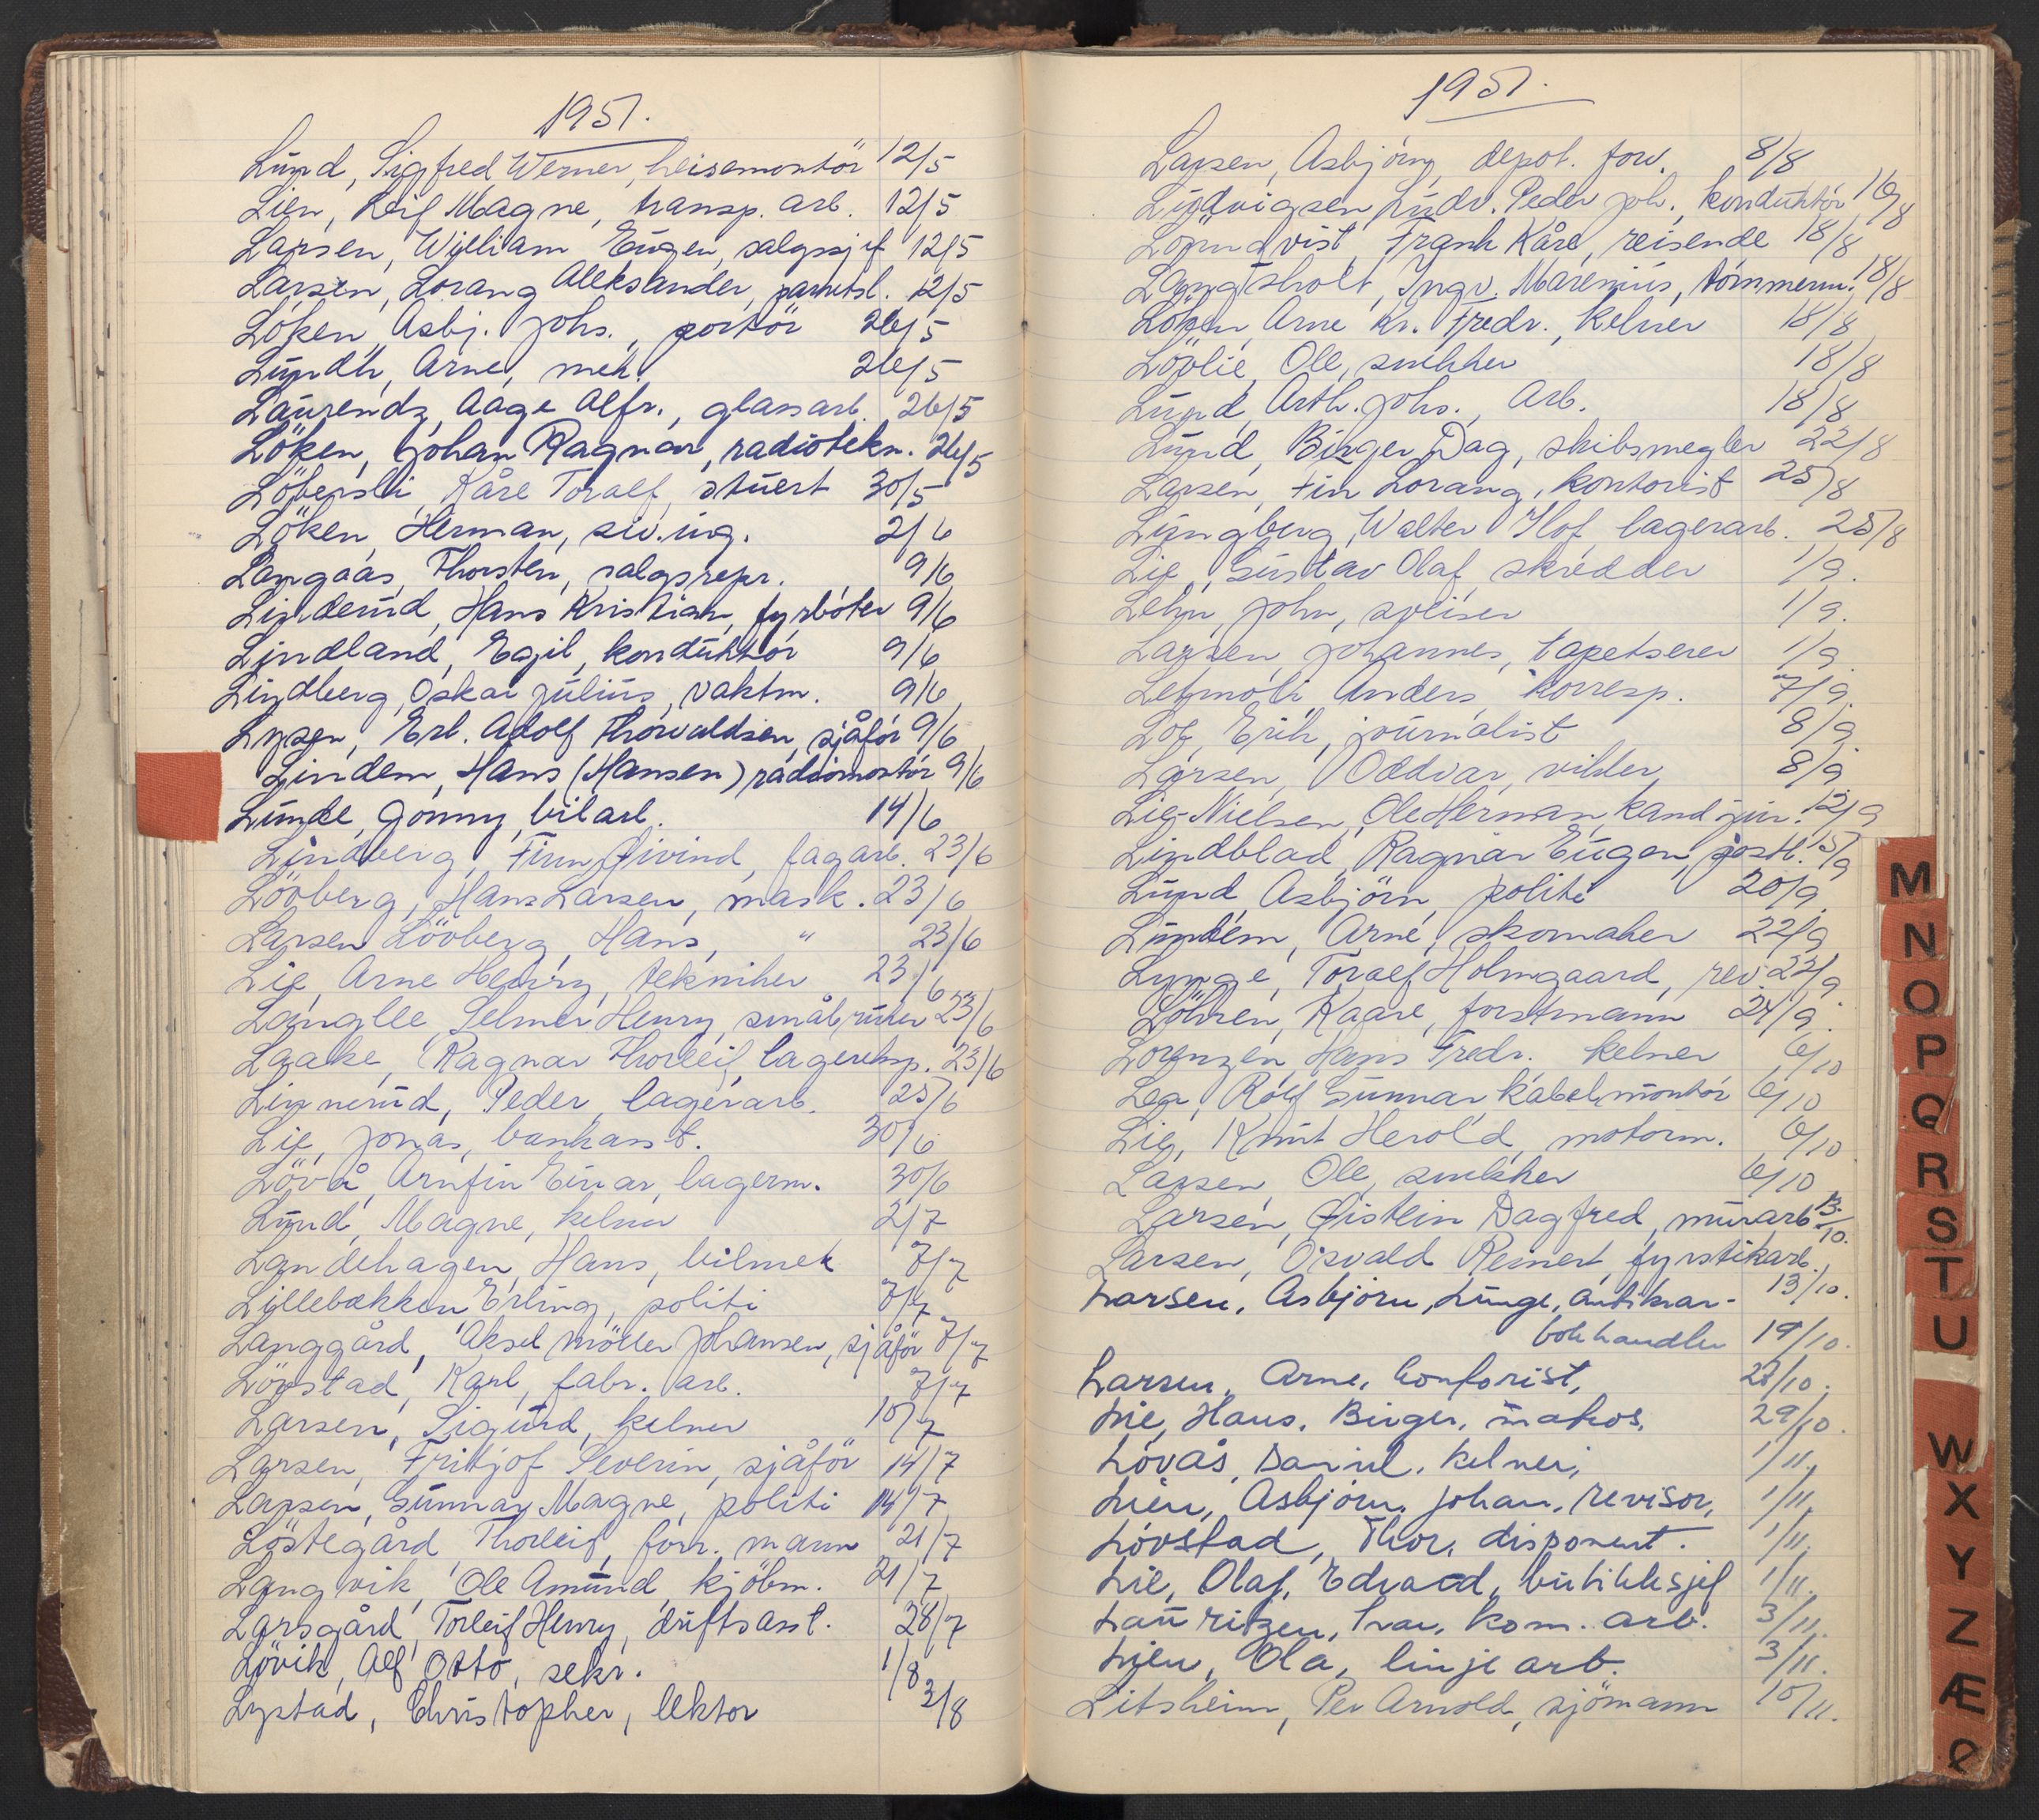 1951.
Lund, Sigfred Werner, heisemontör 12/5
Lien, Leif Magne, transp. arb. 12/5
Larsen, William Eugen, salgssjef 12/5
Larsen, Lorang Aleksander, 12/5
Löken, Asbj. Johs., portör 26/5
Lundh, Arne, mek. 26/5
Laurendz, Aage Alfr., glassarb. 26/5
Löken, Johan Ragnar, radiotekn. 26/5
Kåre Toralf, stuert 30/5
Löken, Herman, siv.ing. 2/6
Langaas, Thorsten, salgsrepr. 9/6
Linderud, Hans Kristian, fyrböter 9/6
Lindland, Egil, konduktör 9/6
Lindberg, Oskar Julius, vaktm. 9/6
Lysen, Erl. Adolf Thorvaldsen, sjåför 9/6
Lindem, Hans (Hansen) radiomontör 9/6
Lunde, Jonny, bilarb. 14/6
Lindberg, Finn Øivind, fagarb. 23/6
Lövberg, Hans Larsen, mask. 23/6
Larsen Lövberg, Hans, " 23/6
Lie, Arne Henry, tekniker 23/6
Langlie, Selmer Henry, småbruker 23/6
Laake, Ragnar Thorleif, lagereksp. 23/6
Linnerud, Peder, lagerarb. 25/6
Lie, Jonas, bankass t. 30/6
Lövå, Arnfin Einar, lagerm. 30/6
Lund, Magne, kelner 2/7
Landehagen, Hans, bilmek 7/7
Lillebækken, Erling, politi 7/7
Langgård, Aksel Möller Johansen, sjåför 7/7
Lövstad, Karl, fabr. arb. 7/7
Larsen, Sigurd, kelner 10/7
Larsen, Fritjof Severin, sjåför 14/7
Larsen, Gunnar Magne, politi 14/7
Löstegård, Thorleif, forr. mann 21/7
Langvik, Ole Amund, kjöbm. 21/7
Larsgård, Torleif Henry, driftsasst. 28/7
Lövik, Alf Otto, sekr. 1/8
Lystad, Christopher, lektor 3/8
1951.
Larsen, Asbjörn, depot. forv. 8/8
Ludvigsen, Ludv. Peder Joh., konduktör 16/8
Frank Kåre, reisende 18/8
Langsholt, Ingv. Marenius, tömmerm. 18/8
Löken, Arne Kr. Fredr., kelner 18/8
Lövlie, Ole, snekker 18/8
Lund, Arth. Johs., Arb. 18/8
Lund, Birger Dag, skibsmegler 22/8
Larsen, Fin Lorang, kontorist 25/8
Lungberg, Walter Olof lagerarb. 25/8
Lie, Gustav Olaf, skredder 1/9.
Lehn, John, sveiser 1/9.
Larsen, Johannes, tapetserer 1/9.
Anders, korresp. 7/9.
Erik, journalist 8/9.
Larsen, Oddvar, vikler 8/9.
Lie-Nielsen, Ole Herman, kand jur. 12/9
Lindblad, Ragnar Eugen, postb. 15/9
Lund, Asbjörn, politi 20/9.
Lundem, Arne, skomaker 22/9
Lynge, Toralf Holmgaard, rev. 22/9
Kaare, forstmann 24/9.
Lorenzen, Hans Fredr. kelner 6/10
Lea, Rolf Gunnar, kabelmontör 6/10
Lie, Knut Herold, motorm. 6/10
Larsen, Ole, snekker 6/10
Larsen, Øistein Dagfred, murarb 13/10.
Larsen, Osvald Reinert, fyrstikarb.
Larsen, Asbjørn, Lunge, antikvar- 13/10.
bokhandler 19/10.
Larsen, Arne, konforist, 23/10.
Lie, Hans. Birger, 29/10.
Lövås, Daniel. Kelner, 1/11.
Lien, Asbjørn. Johan. revisor, 1/11.
Lövstad, Thor, disponent. 1/11.
Lie, Olaf, Edvard, butikksjef 1/11.
Lauritzen, Ivar, kom. arb. 3/11.
Lien, Ola, linje arb. 3/11.
Litsheim, Per Arnold, sjömann 10/11.
M
N
O
P
Q
R
S
T
U
W
X
Y
Z
Æ